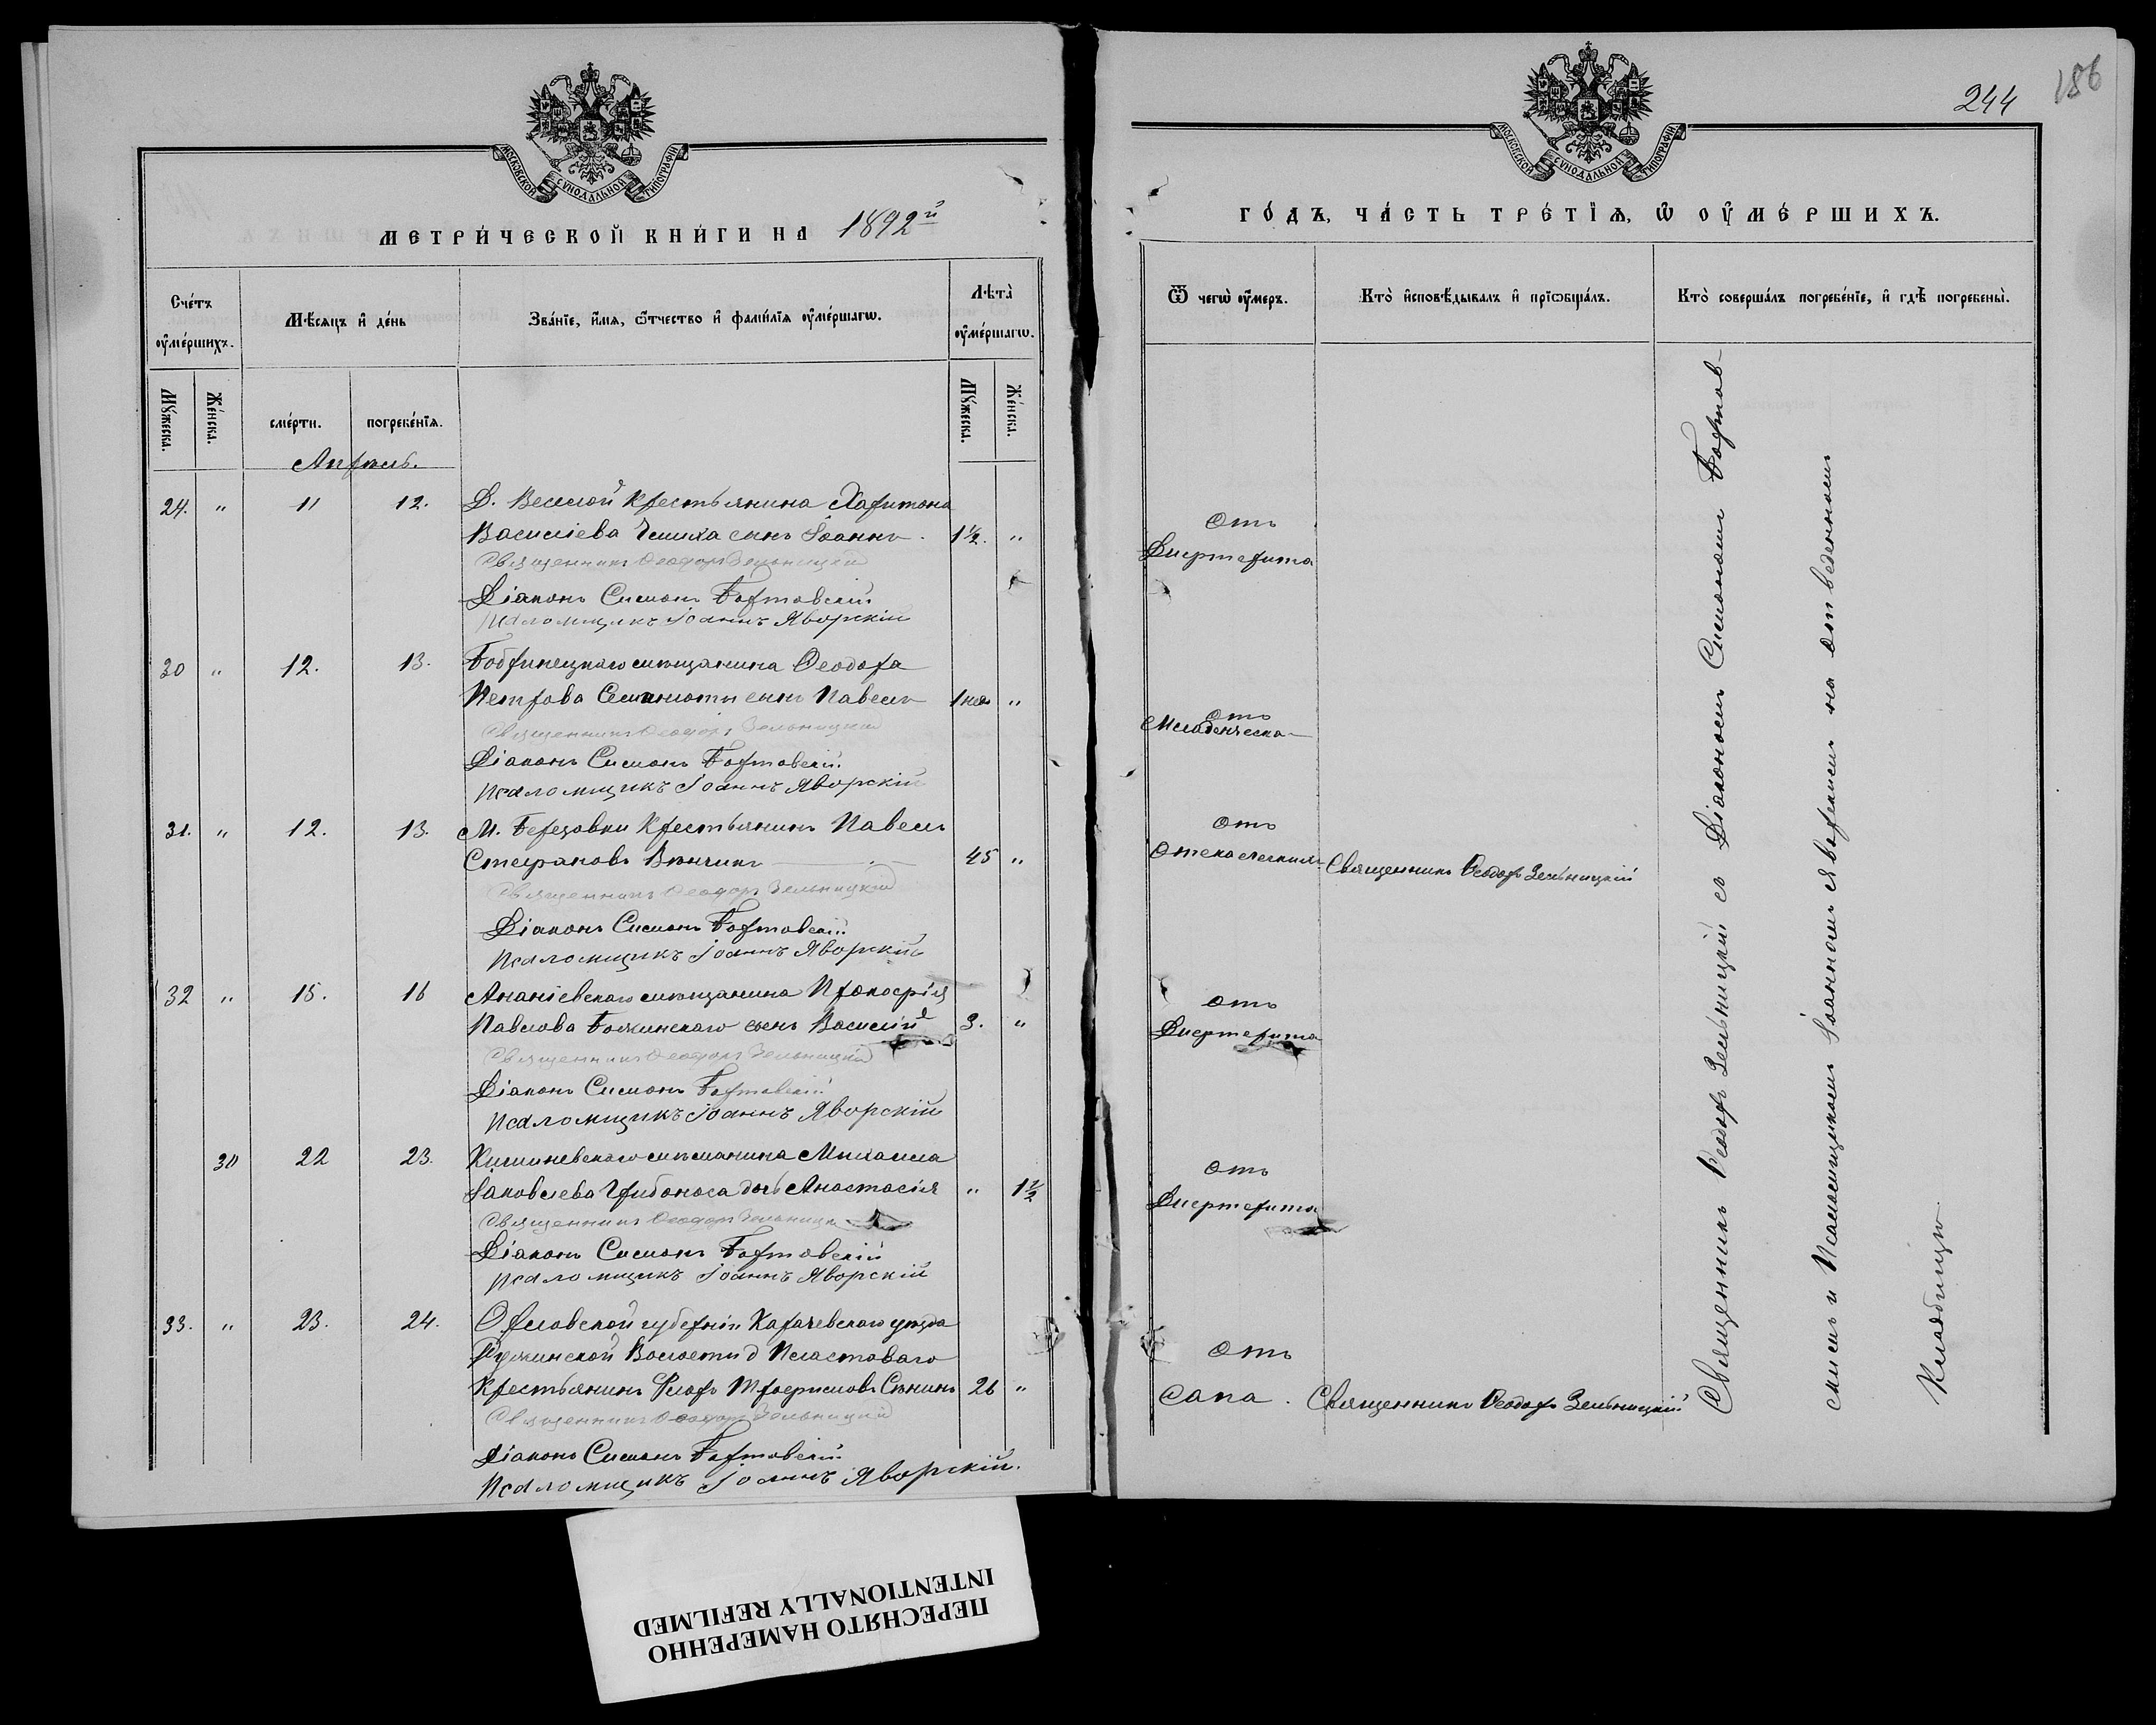 МОСКОВСКОЙ СУНОДАЛЬНОЙ ТИПОГРАФІИ
МЕТРИ́ЧЕСКОЙ КНИ́ГИ НА 1892й
Сче́тъ оу҆ме́ршихъ.
Мѣ́сяцъ и҆ де́нь
Зва́нїе, и҆́мя, ѻ҆́тчество и҆ фамі́лїя оу҆ме́ршагѡ.
Лѣта̀ оу҆ме́ршагѡ.
Му́жеска.
Же́нска.
сме́рти.
погребе́нїя.
Му́жеска.
Же́нска.
Апрѣль.
24. " 11 12. Д. Веселой Крестьянина Харитона
Василіева сынъ Іоаннъ. 1½. "
Священникъ Ѳеодоръ Зельницкій
Діаконъ Симонъ Бортовскій
Псаломщикъ Іоаннъ Яворскій
30 " 12. 13. Бобринецкаго мѣщанина Ѳеодора
Петрова сынъ Павелъ "
Священникъ Ѳеодоръ Зельницкій
Діаконъ Симонъ Бортовскій.
Псаломщикъ Іоаннъ Яворскій
31. " 12. 13. М. Березовки Крестьянинъ Павелъ
Стефановъ 45 "
Священникъ Ѳеодоръ Зельницкій
Діаконъ Симонъ Бортовскій
Псаломщикъ Іоаннъ Яворскій
32 " 15. 16 Ананіевскаго мѣщанина Прокофія
Павлова сынъ Василій 3. "
Священникъ Ѳеодоръ Зельницкій
Діаконъ Симонъ Бортовскій
Псаломщикъ Іоаннъ Яворскій
30 22 23. Кишиневскаго Михаила
Іаковлева Грибоноса дочь Анастасія " 1½
Священникъ Ѳеодоръ
Діаконъ Симонъ Бортовскій
Псаломщикъ Іоаннъ Яворскій
33. " 23. 24. Орловской губерніи Карачевскаго уѣзда
Волости д
Крестьянинъ Трофимовъ 26 "
Священникъ Ѳеодоръ Зельницкій
Діаконъ Симонъ Бортовскій
Псаломщикъ Іоаннъ Яворскій.
244 186
МОСКОВСКОЙ СУНОДАЛЬНОЙ ТИПОГРАФІИ
ГО́ДЪ, ЧА́СТЬ ТРЕ́ТЇЯ, Ѡ҆ ОУ҆МЕ́РШИХЪ.
Ѿ чегѡ̀ оу҆́меръ.
Кто̀ и҆сповѣ́дывалъ и҆ прїѡбща́лъ.
Кто̀ соверша́лъ погребе́нїе, и҆ гдѣ̀ погребены̀.
Отъ
Дифтерита
Отъ
Младенческа-
Отъ
Священникъ Ѳеодоръ Зельницкій
Отъ
Дифтерита
Отъ
Дифтерита
Отъ
Сапа. Священникъ Ѳеодоръ Зельницкій
Священникъ Ѳеодоръ Зельницкій съ Діакономъ Симономъ Бортов-
скимъ и Псаломщикомъ Іоанномъ Яворскимъ на отведенномъ
Кладбищѣ
ПЕРЕСНЯТО НАМЕРЕННО
INTENTIONALLY REFILMED